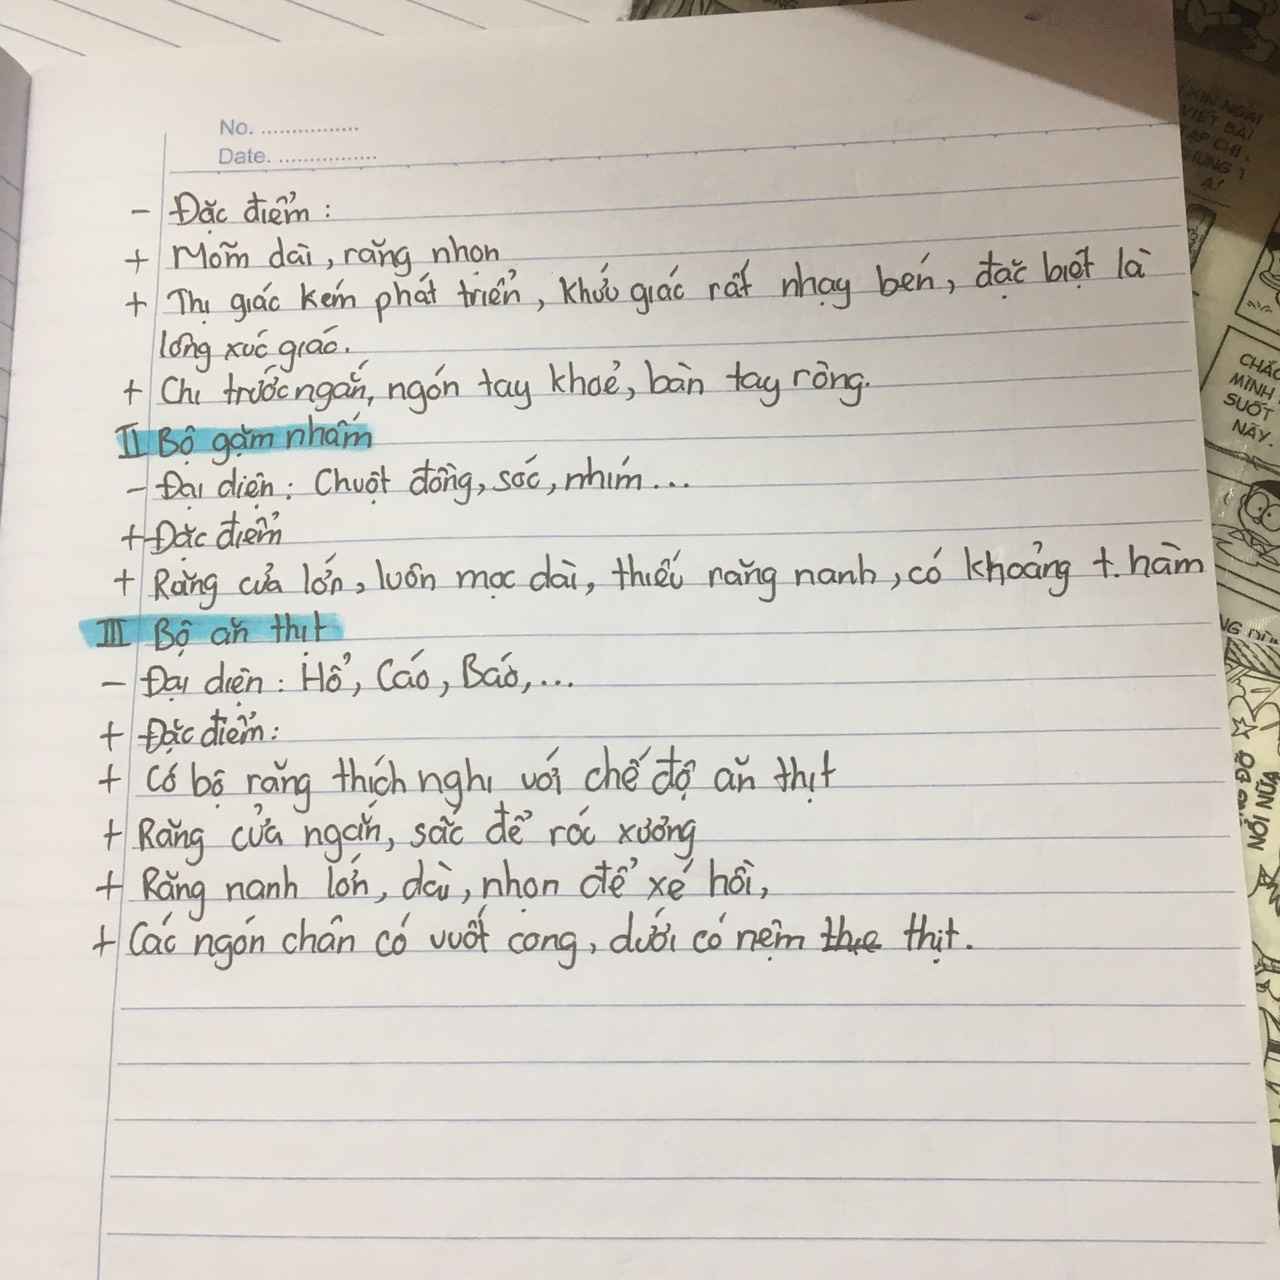 No. ................
Date. ................
- Đặc điểm:
+ Mõm dài, răng nhọn
+ Thị giác kém phát triển, khứu giác rất nhạy bén, đặc biệt là
lông xúc giác.
+ Chi trước ngắn, ngón tay khoẻ, bàn tay rộng.
II Bộ gặm nhấm
- Đại diện: Chuột đồng, sóc, nhím...
+ Đặc điểm
+ Răng cửa lớn, luôn mọc dài, thiếu răng nanh, có khoảng t. hàm
III Bộ ăn thịt
- Đại diện: Hổ, Cáo, Báo,...
+ Đặc điểm:
+ Có bộ răng thích nghi với chế độ ăn thịt
+ Răng cửa ngắn, sắc để róc xương
+ Răng nanh lớn, dài, nhọn để xé hồi,
+ Các ngón chân có vuốt cong, dưới có nệm thịt.
XIN NGÀI
VIẾT BÀI
CHẮC
MÌNH
SUỐT
NÀY.
NÓI NỮA